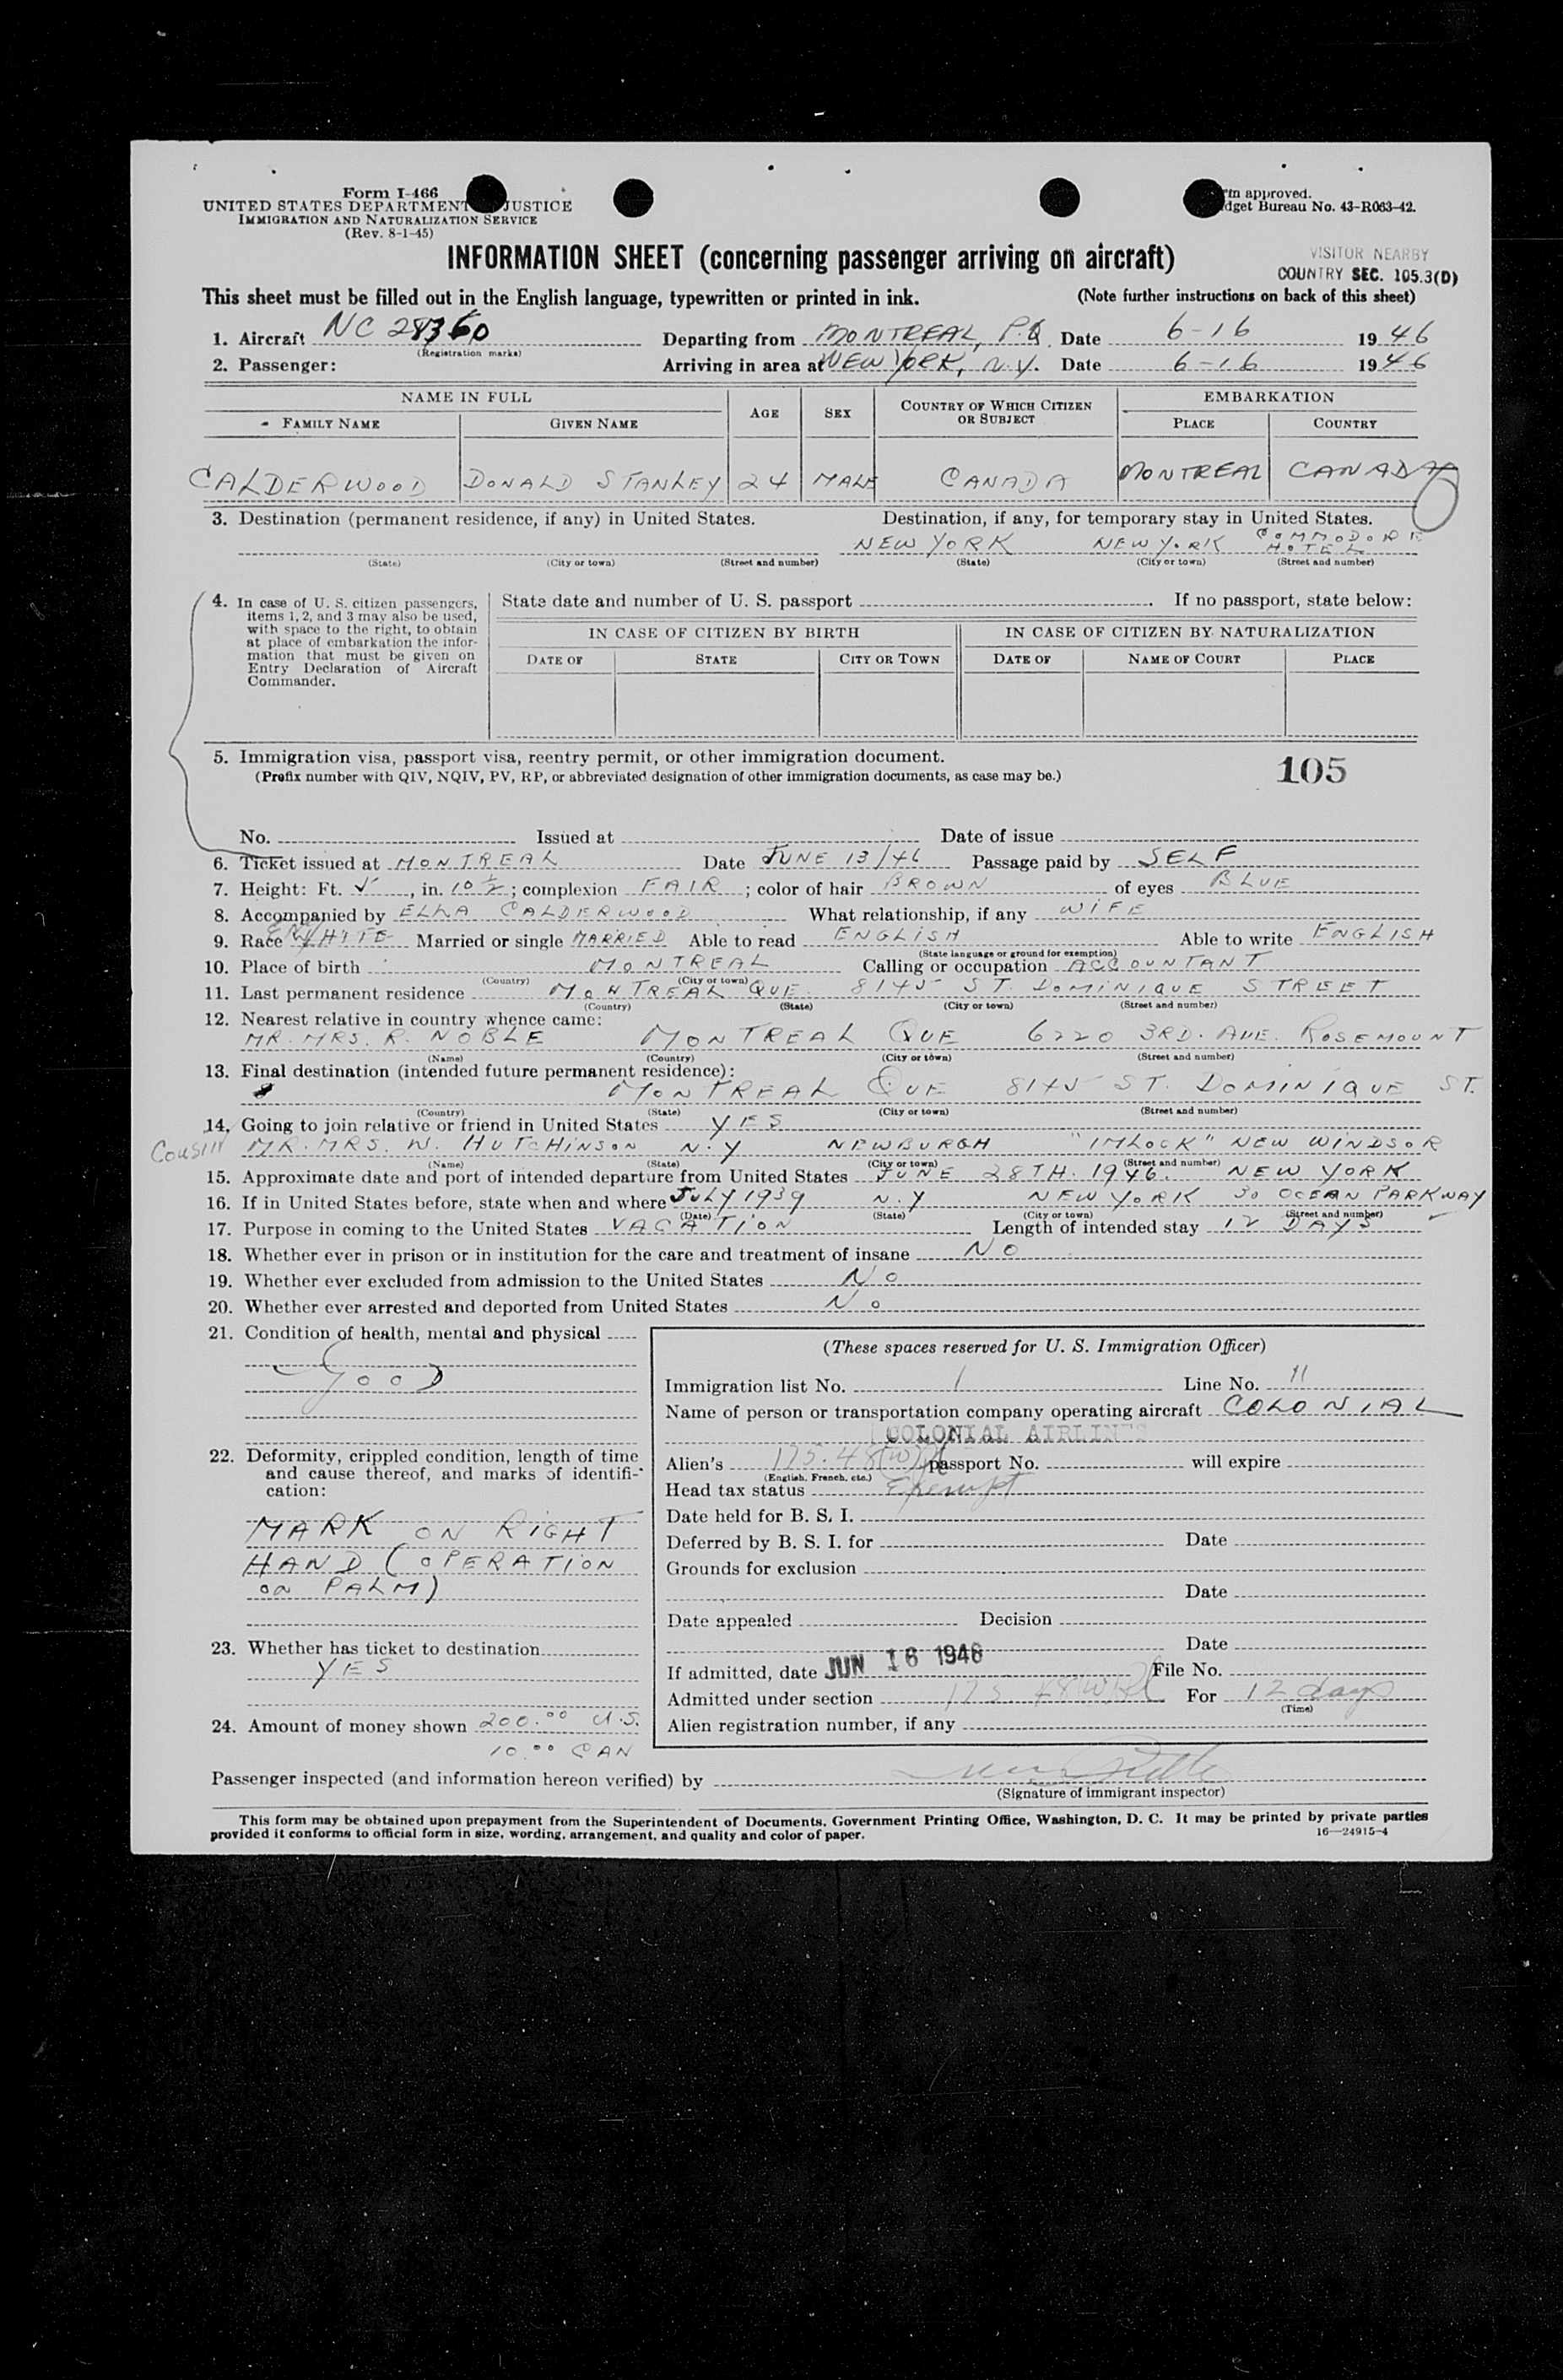 Form I-466
UNITED STATES DEPARTMENT JUSTICE
IMMIGRATION AND NATURALIZATION SERVICE
(Rev. 8-1-45)
approved.
dget Bureau No. 43-R063-42.
INFORMATION SHEET (concerning passenger arriving on aircraft)
VISITOR NEARBY
COUNTRY SEC. 105.3(D)
This sheet must be filled out in the English language, typewritten or printed in ink. (Note further instructions on back of this sheet)
1. Aircraft NC 28360 Departing from MONTREAL, P.Q. Date 6-16 1946
(Registration marks)
2. Passenger: Arriving in area at NEW YORK, N.Y. Date 6-16 1946
NAME IN FULL AGE SEX COUNTRY OF WHICH CITIZEN OR SUBJECT EMBARKATION
FAMILY NAME GIVEN NAME PLACE COUNTRY
CALDERWOOD DONALD STANLEY 24 MALE CANADA MONTREAL CANADA
3. Destination (permanent residence, if any) in United States. Destination, if any, for temporary stay in United States.
NEW YORK NEW YORK COMMODORE HOTEL
(State) (City or town) (Street and number) (State) (City or town) (Street and number)
4. In case of U. S. citizen passengers, items 1, 2, and 3 may also be used, with space to the right, to obtain at place of embarkation the information that must be given on Entry Declaration of Aircraft Commander.
State date and number of U. S. passport . If no passport, state below:
IN CASE OF CITIZEN BY BIRTH IN CASE OF CITIZEN BY NATURALIZATION
DATE OF STATE CITY OR TOWN DATE OF NAME OF COURT PLACE
5. Immigration visa, passport visa, reentry permit, or other immigration document.
(Prefix number with QIV, NQIV, PV, RP, or abbreviated designation of other immigration documents, as case may be.)
105
No. Issued at Date of issue
6. Ticket issued at MONTREAL Date JUNE 13/46 Passage paid by SELF
7. Height: Ft. 5, in. 10 1/2; complexion FAIR; color of hair BROWN of eyes BLUE
8. Accompanied by ELMA CALDERWOOD What relationship, if any WIFE
9. Race WHITE Married or single MARRIED Able to read ENGLISH Able to write ENGLISH
(State language or ground for exemption)
10. Place of birth MONTREAL Calling or occupation ACCOUNTANT
(Country) (City or town)
11. Last permanent residence MONTREAL QUE. 8145 ST. DOMINIQUE STREET
(Country) (State) (City or town) (Street and number)
12. Nearest relative in country whence came:
MR. MRS. R. NOBLE MONTREAL QUE 6220 3RD. AVE. ROSEMOUNT
(Name) (Country) (City or town) (Street and number)
13. Final destination (intended future permanent residence):
MONTREAL QUE 8145 ST. DOMINIQUE ST.
(Country) (State) (City or town) (Street and number)
14. Going to join relative or friend in United States YES
Cousin MR. MRS. W. HUTCHINSON N.Y NEWBURGH "IMLOCK" NEW WINDSOR
(Name) (State) (City or town) (Street and number)
15. Approximate date and port of intended departure from United States JUNE 28TH. 1946. NEW YORK
16. If in United States before, state when and where JULY 1939 N.Y NEW YORK 30 OCEAN PARKWAY
(Date) (State) (City or town) (Street and number)
17. Purpose in coming to the United States VACATION Length of intended stay 12 DAYS
18. Whether ever in prison or in institution for the care and treatment of insane NO
19. Whether ever excluded from admission to the United States NO
20. Whether ever arrested and deported from United States NO
21. Condition of health, mental and physical
GOOD
22. Deformity, crippled condition, length of time and cause thereof, and marks of identification:
MARK ON RIGHT
HAND (OPERATION
ON PALM)
23. Whether has ticket to destination
YES
24. Amount of money shown 200.00 U.S.
10.00 CAN
(These spaces reserved for U. S. Immigration Officer)
Immigration list No. 1 Line No. 11
Name of person or transportation company operating aircraft COLONIAL
COLONIAL AIRLINES
Alien's 175.48 passport No. will expire
(English, French, etc.)
Head tax status Exempt
Date held for B. S. I.
Deferred by B. S. I. for Date
Grounds for exclusion
Date
Date appealed Decision
Date
If admitted, date JUN 16 1946 File No.
Admitted under section 175.48 For 12 days
(Time)
Alien registration number, if any
Passenger inspected (and information hereon verified) by
(Signature of immigrant inspector)
This form may be obtained upon prepayment from the Superintendent of Documents, Government Printing Office, Washington, D. C. It may be printed by private parties
provided it conforms to official form in size, wording, arrangement, and quality and color of paper. 16—24915-4